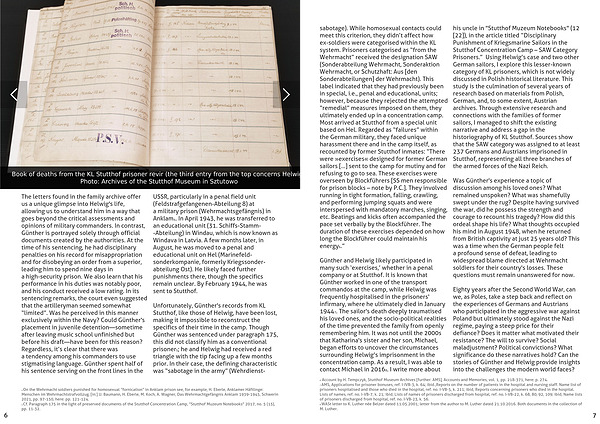 Sch. H.
politisch
Polizeihäftling
Sch. H.
politisch
P.S.V.
Book of deaths from the KL Stutthof prisoner revir (the third entry from the top concerns Helwi
Photo: Archives of the Stutthof Museum in Sztutowo
The letters found in the family archive offer
us a unique glimpse into Helwig's life,
allowing us to understand him in a way that
goes beyond the critical assessments and
opinions of military commanders. In contrast,
Günther is portrayed solely through official
documents created by the authorities. At the
time of his sentencing, he had disciplinary
penalties on his record for misappropriation
and for disobeying an order from a superior,
leading him to spend nine days in
a high-security prison. We also learn that his
performance in his duties was notably poor,
and his conduct received a low rating. In its
sentencing remarks, the court even suggested
that the artilleryman seemed somewhat
"limited". Was he perceived in this manner
exclusively within the Navy? Could Günther's
placement in juvenile detention—sometime
after leaving music school unfinished but
before his draft—have been for this reason?
Regardless, it's clear that there was
a tendency among his commanders to use
stigmatising language. Günther spent half of
his sentence serving on the front lines in the
USSR, particularly in a penal field unit
(Feldstrafgefangenen-Abteilung 8) at
a military prison (Wehrmachtsgefängnis) in
Anklam. In April 1943, he was transferred to
an educational unit (31. Schiffs-Stamm-
-Abteilung) in Windau, which is now known as
Windava in Latvia. A few months later, in
August, he was moved to a penal and
educational unit on Hel (Marinefeld-
sonderkompanie, formerly Kriegssonder-
abteilung Ost). He likely faced further
punishments there, though the specifics
remain unclear. By February 1944, he was
sent to Stutthof.
Unfortunately, Günther's records from KL
Stutthof, like those of Helwig, have been lost,
making it impossible to reconstruct the
specifics of their time in the camp. Though
Günther was sentenced under paragraph 175,
this did not classify him as a conventional
prisoner; he and Helwig had received a red
triangle with the tip facing up a few months
prior. In their case, the defining characteristic
was "sabotage in the army" (Wehrdienst-
6
sabotage). While homosexual contacts could
meet this criterion, they didn't affect how
ex-soldiers were categorised within the KL
system. Prisoners categorised as "from the
Wehrmacht" received the designation SAW
(Sonderabteilung Wehrmacht, Sonderaktion
Wehrmacht, or Schutzhaft: Aus [den
Sonderabteilungen] der Wehrmacht). This
label indicated that they had previously been
in special, i.e., penal and educational, units;
however, because they rejected the attempted
"remedial" measures imposed on them, they
ultimately ended up in a concentration camp.
Most arrived at Stutthof from a special unit
based on Hel. Regarded as "failures" within
the German military, they faced unique
harassment there and in the camp itself, as
recounted by former Stutthof inmates: "There
were »exercises« designed for former German
sailors [...] sent to the camp for mutiny and for
refusing to go to sea. These exercises were
overseen by Blockführers [SS men responsible
for prison blocks – note by P.C.]. They involved
running in tight formation, falling, crawling,
and performing jumping squats and were
interspersed with mandatory marches, singing,
etc. Beatings and kicks often accompanied the
pace set verbally by the Blockführer. The
duration of these exercises depended on how
long the Blockführer could maintain his
energy".
Günther and Helwig likely participated in
many such 'exercises,' whether in a penal
company or at Stutthof. It is known that
Günther worked in one of the transport
commandos at the camp, while Helwig was
frequently hospitalised in the prisoners'
infirmary, where he ultimately died in January
1944. The sailor's death deeply traumatised
his loved ones, and the socio-political realities
of the time prevented the family from openly
remembering him. It was not until the 2000s
that Katharina's sister and her son, Michael,
began efforts to uncover the circumstances
surrounding Helwig's imprisonment in the
concentration camp. As a result, I was able to
contact Michael in 2016. I write more about
his uncle in "Stutthof Museum Notebooks" (12
[22]), in the article titled "Disciplinary
Punishment of Kriegsmarine Sailors in the
Stutthof Concentration Camp – SAW Category
Prisoners." Using Helwig's case and two other
German sailors, I explore this lesser-known
category of KL prisoners, which is not widely
discussed in Polish historical literature. This
study is the culmination of several years of
research based on materials from Polish,
German, and, to some extent, Austrian
archives. Through extensive research and
connections with the families of former
sailors, I managed to shift the existing
narrative and address a gap in the
historiography of KL Stutthof. Sources show
that the SAW category was assigned to at least
237 Germans and Austrians imprisoned in
Stutthof, representing all three branches of
the armed forces of the Nazi Reich.
Was Günther's experience a topic of
discussion among his loved ones? What
remained unspoken? What was shamefully
swept under the rug? Despite having survived
the war, did he possess the strength and
courage to recount his tragedy? How did this
ordeal shape his life? What thoughts occupied
his mind in August 1948, when he returned
from British captivity at just 25 years old? This
was a time when the German people felt
a profound sense of defeat, leading to
widespread blame directed at Wehrmacht
soldiers for their country's losses. These
questions must remain unanswered for now.
Eighty years after the Second World War, can
we, as Poles, take a step back and reflect on
the experiences of Germans and Austrians
who participated in the aggressive war against
Poland but ultimately stood against the Nazi
regime, paying a steep price for their
defiance? Does it matter what motivated their
resistance? The will to survive? Social
maladjustment? Political convictions? What
significance do these narratives hold? Can the
stories of Günther and Helwig provide insights
into the challenges the modern world faces?
7